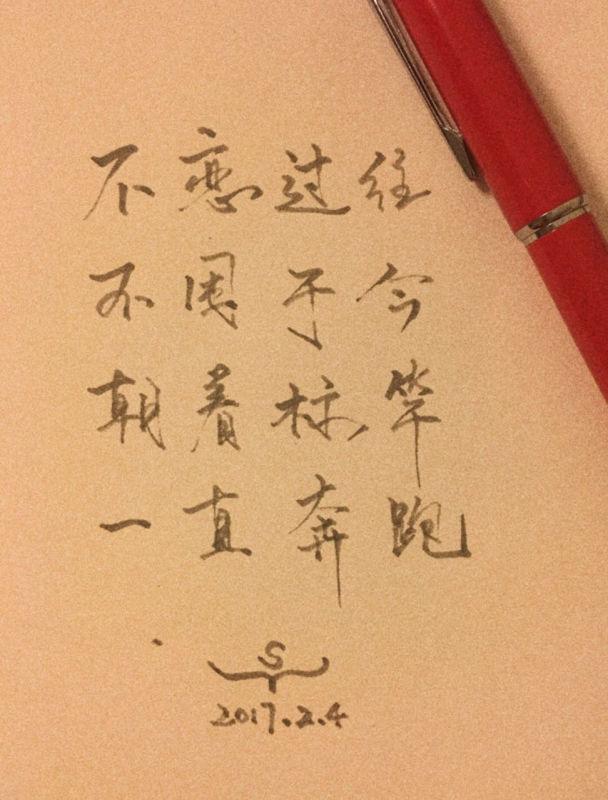 不恋过往
不困于今
朝着标竿
一直奔跑
S
2017.2.4